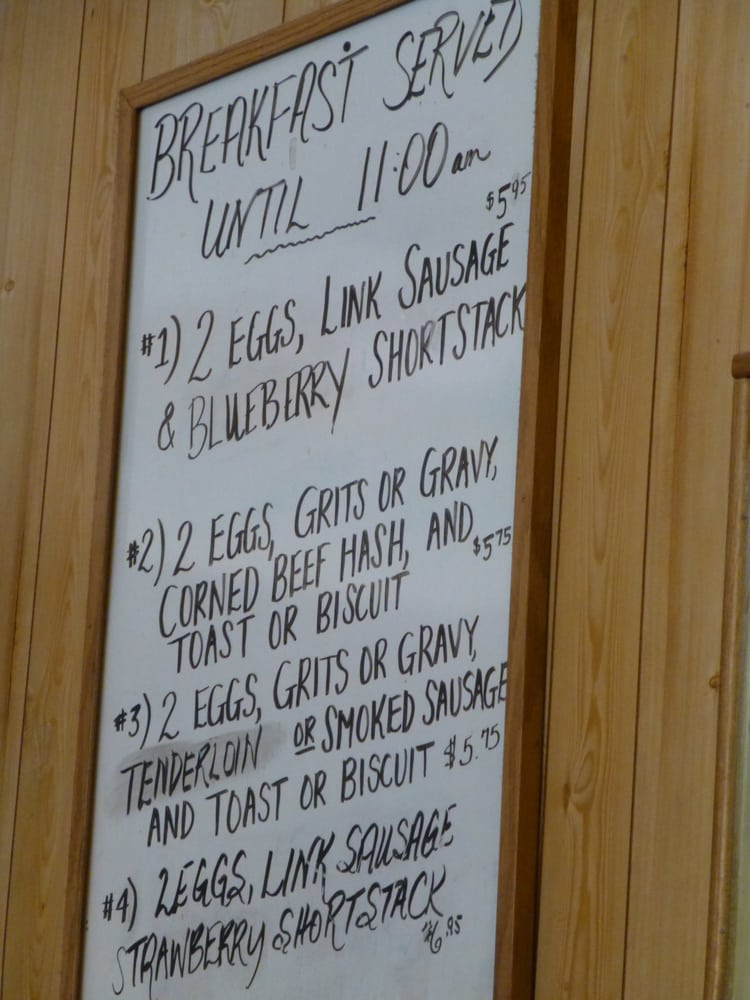 BREAKFAST SERVED
UNTIL 11:00 am
$5.95
#1) 2 EGGS, LINK SAUSAGE
& BLUEBERRY SHORTSTACK
#2) 2 EGGS, GRITS OR GRAVY,
CORNED BEEF HASH, AND $5.75
TOAST OR BISCUIT
#3) 2 EGGS, GRITS OR GRAVY,
TENDERLOIN OR SMOKED SAUSAGE
AND TOAST OR BISCUIT $5.75
#4) 2 EGGS, LINK SAUSAGE
STRAWBERRY SHORTSTACK
$6.95